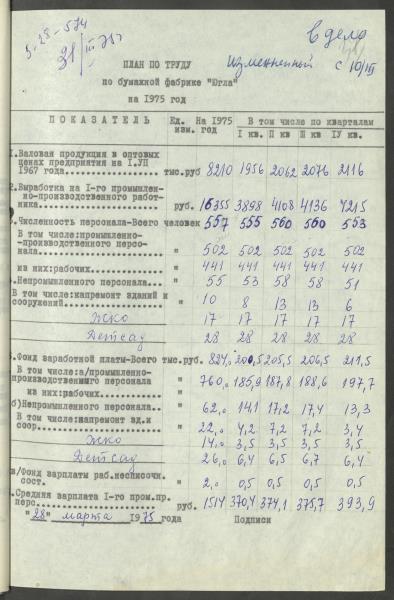 3-28-534
31/III 75г
в дело
измененный с 10/III
ПЛАН ПО ТРУДУ
по бумажной фабрике "Югла"
на 1975 год
ПОКАЗАТЕЛЬ Ед. изм. На 1975 год В том числе по кварталам
I кв. II кв III кв. IУ кв.
1.Валовая продукция в оптовых
ценах предприятия на I.УП
1967 года тыс.руб 8210 1956 2062 2076 2116
2.Выработка на I-го промышлен-
но-производственного работ-
ника руб. 16355 3898 4108 4136 4215
3.Численность персонала-Всего человек 557 555 560 560 553
В том числе:промышленно-
-производственного персо-
нала " 502 502 502 502 502
из них:рабочих " 441 441 441 441 441
4.Непромышленного персонала " 55 53 58 58 51
В том числе:капремонт зданий и
сооружений " 10 8 13 13 6
ЖКО " 17 17 17 17 17
Детсад " 28 28 28 28 28
5.Фонд заработной платы-Всего тыс.руб. 824,0 200,5 205,5 206,5 211,5
В том числе:а/промышленно-
производственного персонала " 760,0 185,9 187,8 188,6 197,7
из них:рабочих "
б)Непромышленного персонала " 62,0 14,1 17,2 17,4 13,3
В том числе:капремонт зд.и
соор. " 22,0 4,2 7,2 7,2 3,4
ЖКО " 14,0 3,5 3,5 3,5 3,5
Детсад " 26,0 6,4 6,5 6,7 6,4
в/Фонд зарплаты раб.несписочн.
сост. " 2,0 0,5 0,5 0,5 0,5
6.Средняя зарплата I-го пром.пр.
перс. руб. 1514 370,4 374,1 375,7 393,9
"28" марта 1975 года Подписи